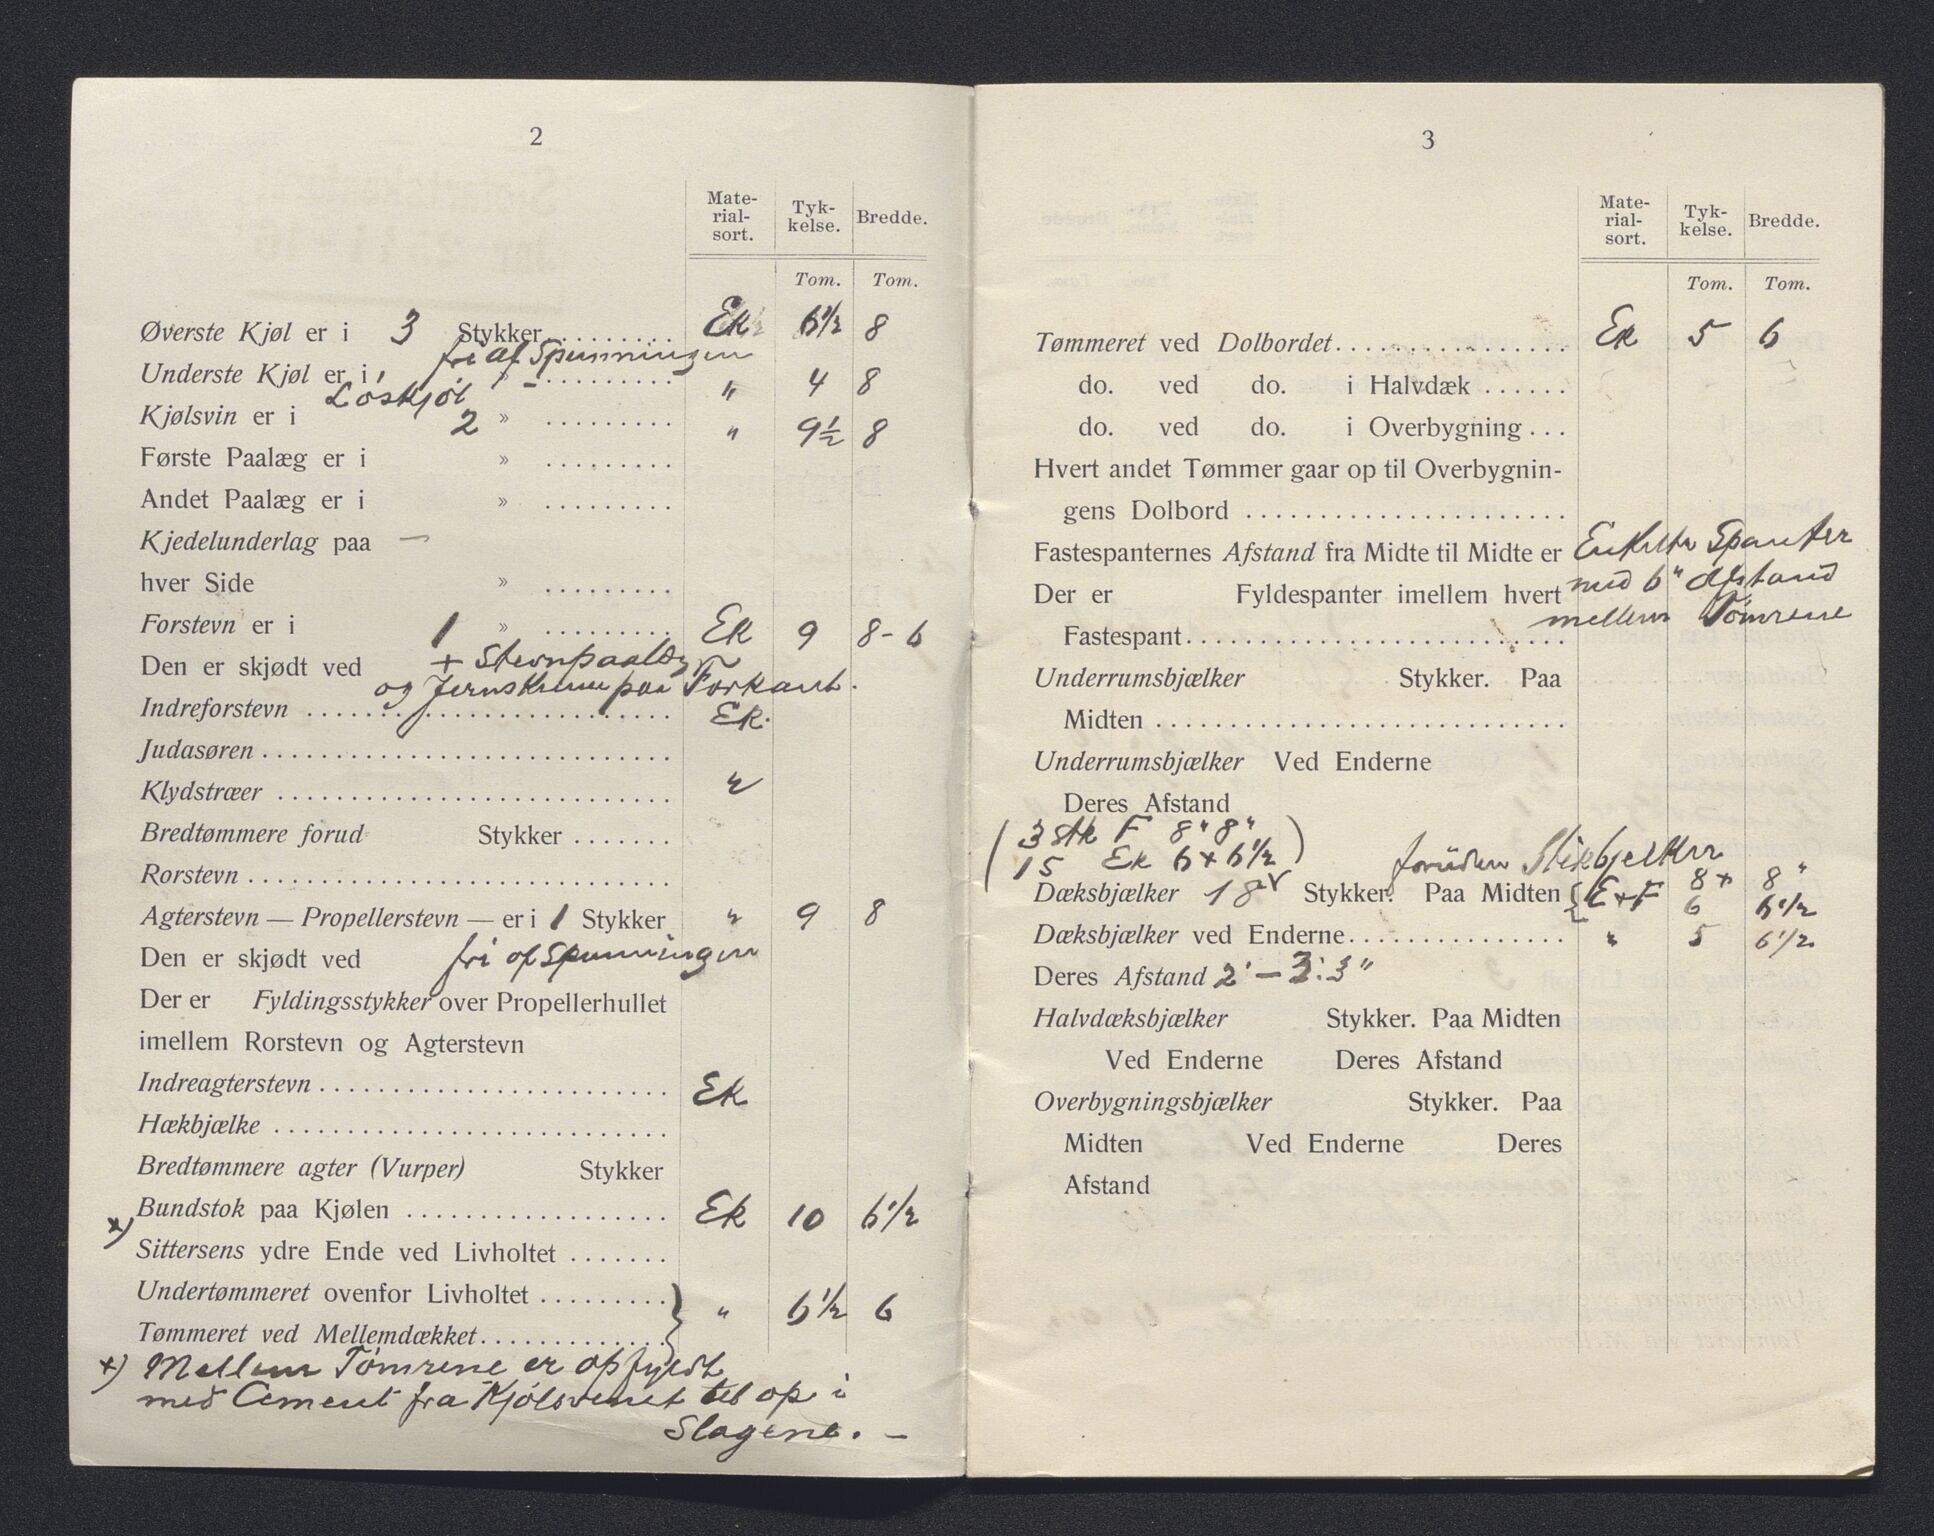 2
Mate-
rial-
sort.
Tyk-
kelse.
Bredde.
Tom. Tom.
Øverste Kjøl er i 3 Stykker ......... Ek 6½ 8
fri af Spunningen
Underste Kjøl er i » ......... " 4 8
Løskjøl
Kjølsvin er i 2 » ......... " 9½ 8
Første Paalæg er i » .........
Andet Paalæg er i » .........
Kjedelunderlag paa —
hver Side » .........
Forstevn er i 1 » ......... Ek 9 8-6
+ Stevnpaalæg
Den er skjødt ved
og Jernskinne paa Forkant.
Indreforstevn ......... Ek.
Judasøren .........
Klydstræer ......... "
Bredtømmere forud Stykker .......
Rorstevn .........
Agterstevn — Propellerstevn — er i 1 Stykker " 9 8
Den er skjødt ved fri af Spunningen
Der er Fyldingsstykker over Propellerhullet
imellem Rorstevn og Agterstevn
Indreagterstevn ......... Ek
Hækbjælke .........
Bredtømmere agter (Vurper) Stykker
Bundstok paa Kjølen ......... Ek 10 6½
x)
Sittersens ydre Ende ved Livholtet .......
Undertømmeret ovenfor Livholtet ......... } " 6½ 6
Tømmeret ved Mellemdækket .........
x) Mellem Tømrene er opfyldt
med Cement fra Kjølsvinet til op i
Slagene. —
3
Mate-
rial-
sort.
Tyk-
kelse.
Bredde.
Tom. Tom.
Tømmeret ved Dolbordet ......... Ek 5 6
do. ved do. i Halvdæk ......
do. ved do. i Overbygning ...
Hvert andet Tømmer gaar op til Overbygnin-
gens Dolbord .........
Fastespanternes Afstand fra Midte til Midte er Enkelte Spanter
Der er Fyldespanter imellem hvert med 6" Afstand
mellem Tømrene
Fastespant .........
Underrumsbjælker Stykker. Paa
Midten .........
Underrumsbjælker Ved Enderne
Deres Afstand
(3 stk F 8" 8"
15 Ek 6 x 6½) foruden Stikbjelker
Dæksbjælker 18 Stykker. Paa Midten { E+F 8 x 8"
6 6½
Dæksbjælker ved Enderne ......... " 5 6½
Deres Afstand 2' — 3'.3"
Halvdæksbjælker Stykker. Paa Midten
Ved Enderne Deres Afstand
Overbygningsbjælker Stykker. Paa
Midten Ved Enderne Deres
Afstand